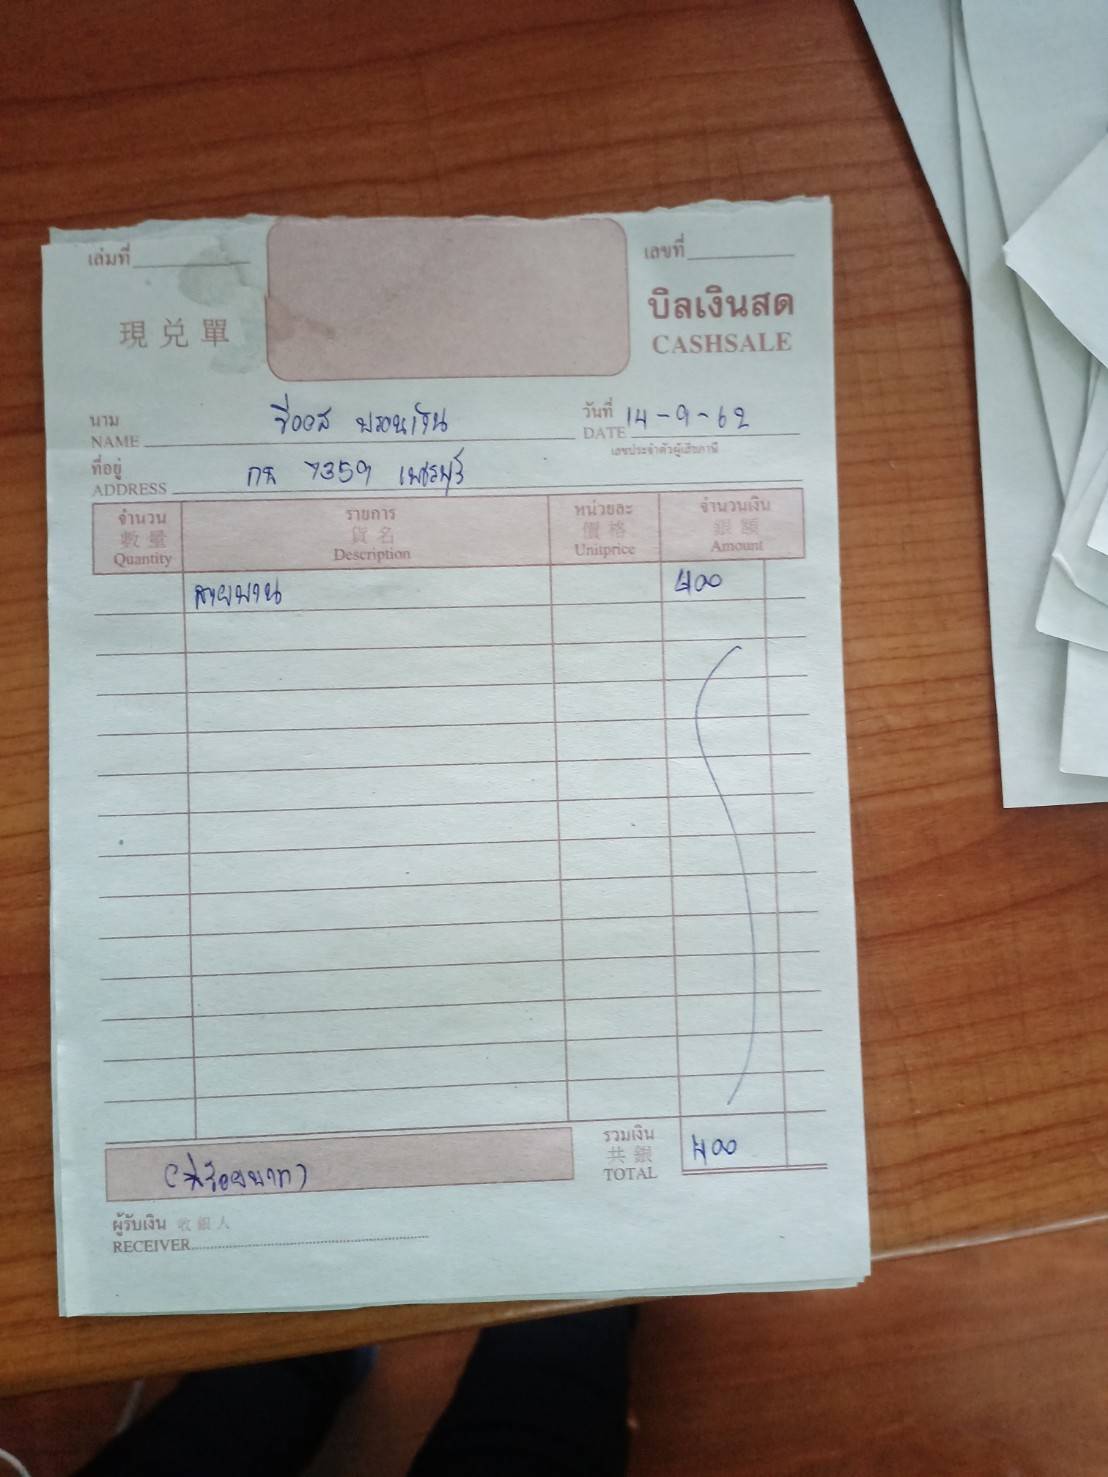 เล่มที่
เลขที่
現兑單
บิลเงินสด
CASHSALE
นาม
NAME
วันที่ 14-9-62
DATE
เลขประจำตัวผู้เสียภาษี
ที่อยู่ กค 7359 เพชรบุรี
ADDRESS
จำนวน รายการ หน่วยละ จำนวนเงิน
數量 貨名 價格 銀額
Quantity Description Unitprice Amount
สายพาน 400
รวมเงิน
共銀
TOTAL 400
(สี่ร้อยบาท)
ผู้รับเงิน 收銀人
RECEIVER